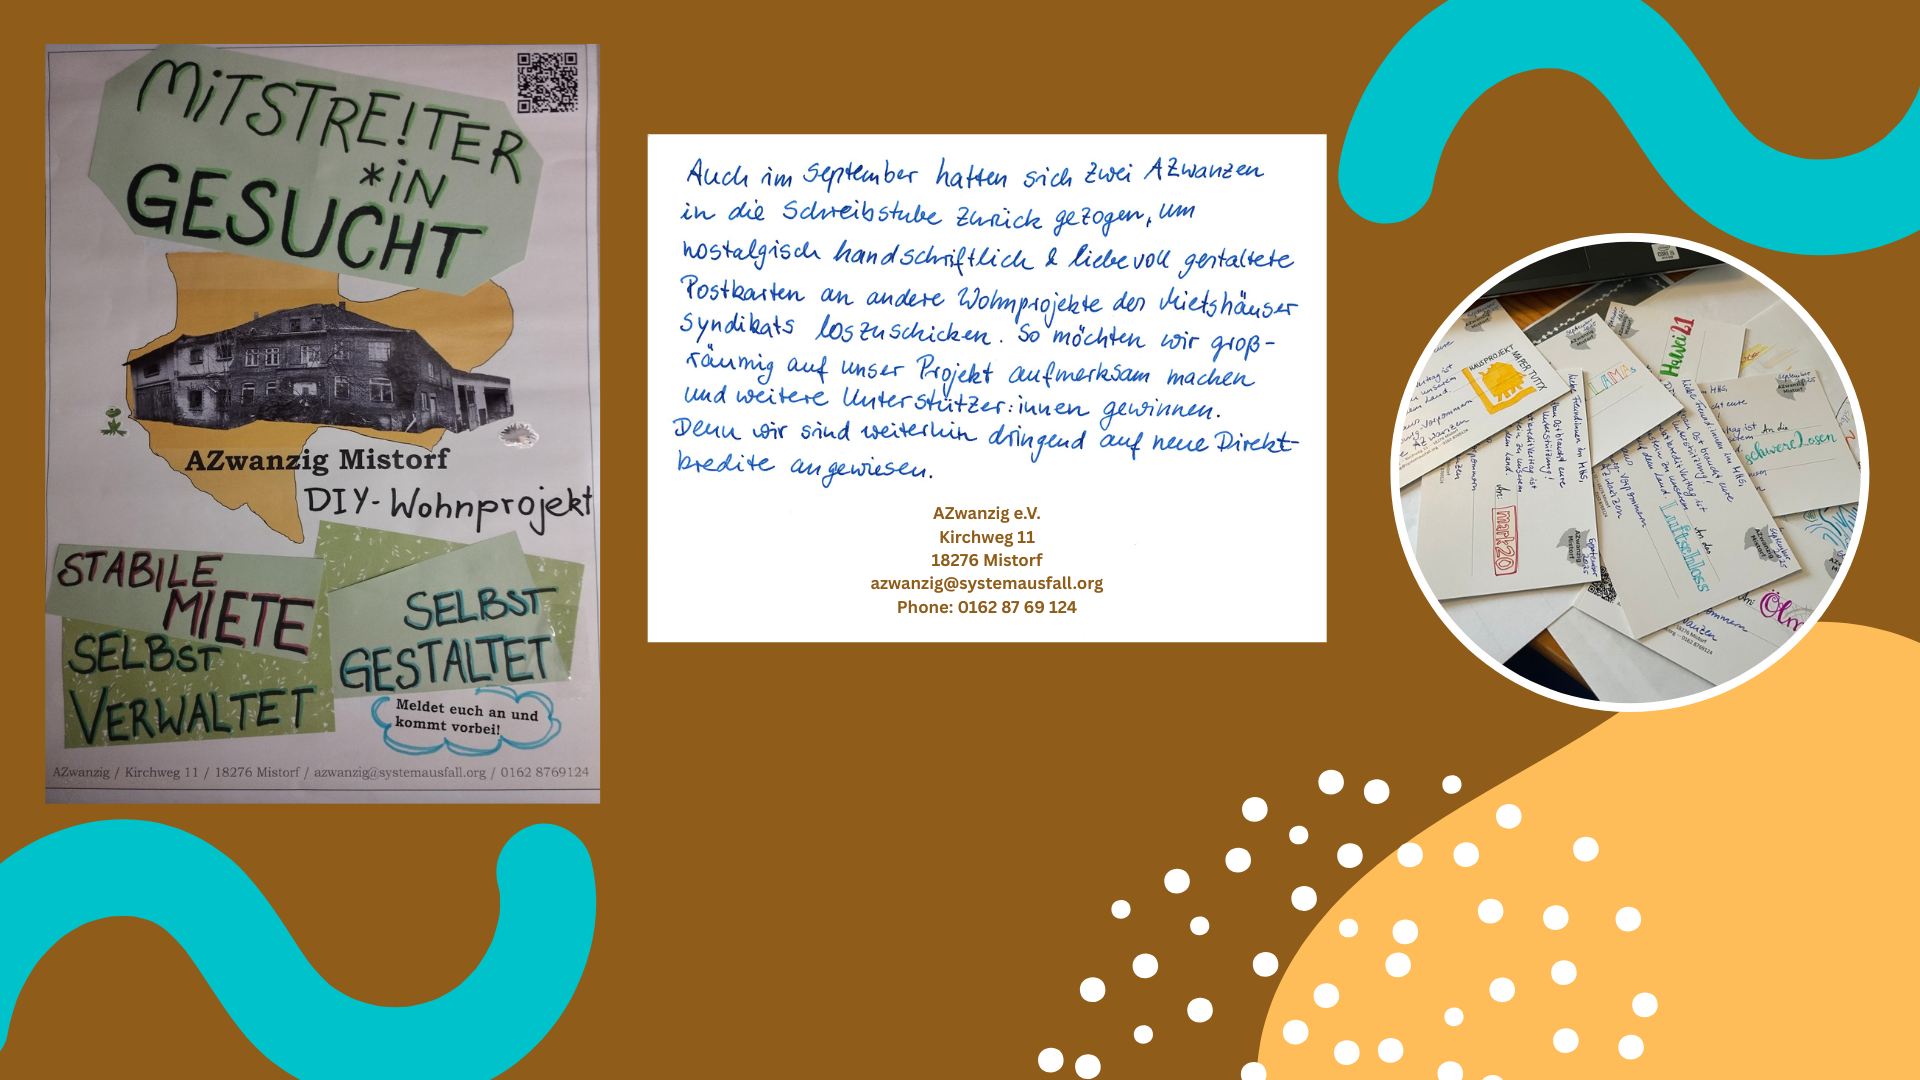 MiTSTRE!TER
*iN
GESUCHT
AZwanzig Mistorf
DIY-Wohnprojekt
STABILE
MIETE
SELBST
VERWALTET
SELBST
GESTALTET
Meldet euch an und
kommt vorbei!
AZwanzig / Kirchweg 11 / 18276 Mistorf / azwanzig@systemausfall.org / 0162 8769124
Auch im September hatten sich zwei AZwanzen
in die Schreibstube zurück gezogen, um
nostalgisch handschriftlich & liebevoll gestaltete
Postkarten an andere Wohnprojekte des Mietshäuser
Syndikats loszuschicken. So möchten wir groß-
räumig auf unser Projekt aufmerksam machen
und weitere Unterstützer:innen gewinnen.
Denn wir sind weiterhin dringend auf neue Direkt-
kredite angewiesen.
AZwanzig e.V.
Kirchweg 11
18276 Mistorf
azwanzig@systemausfall.org
Phone: 0162 87 69 124
HAUSPROJEKT
LAMAs
Hawai 21
An die
schwereLosen
An:
mark20
An das
Luftschloss
An:
AZwanzig
Mistorf
September
2025